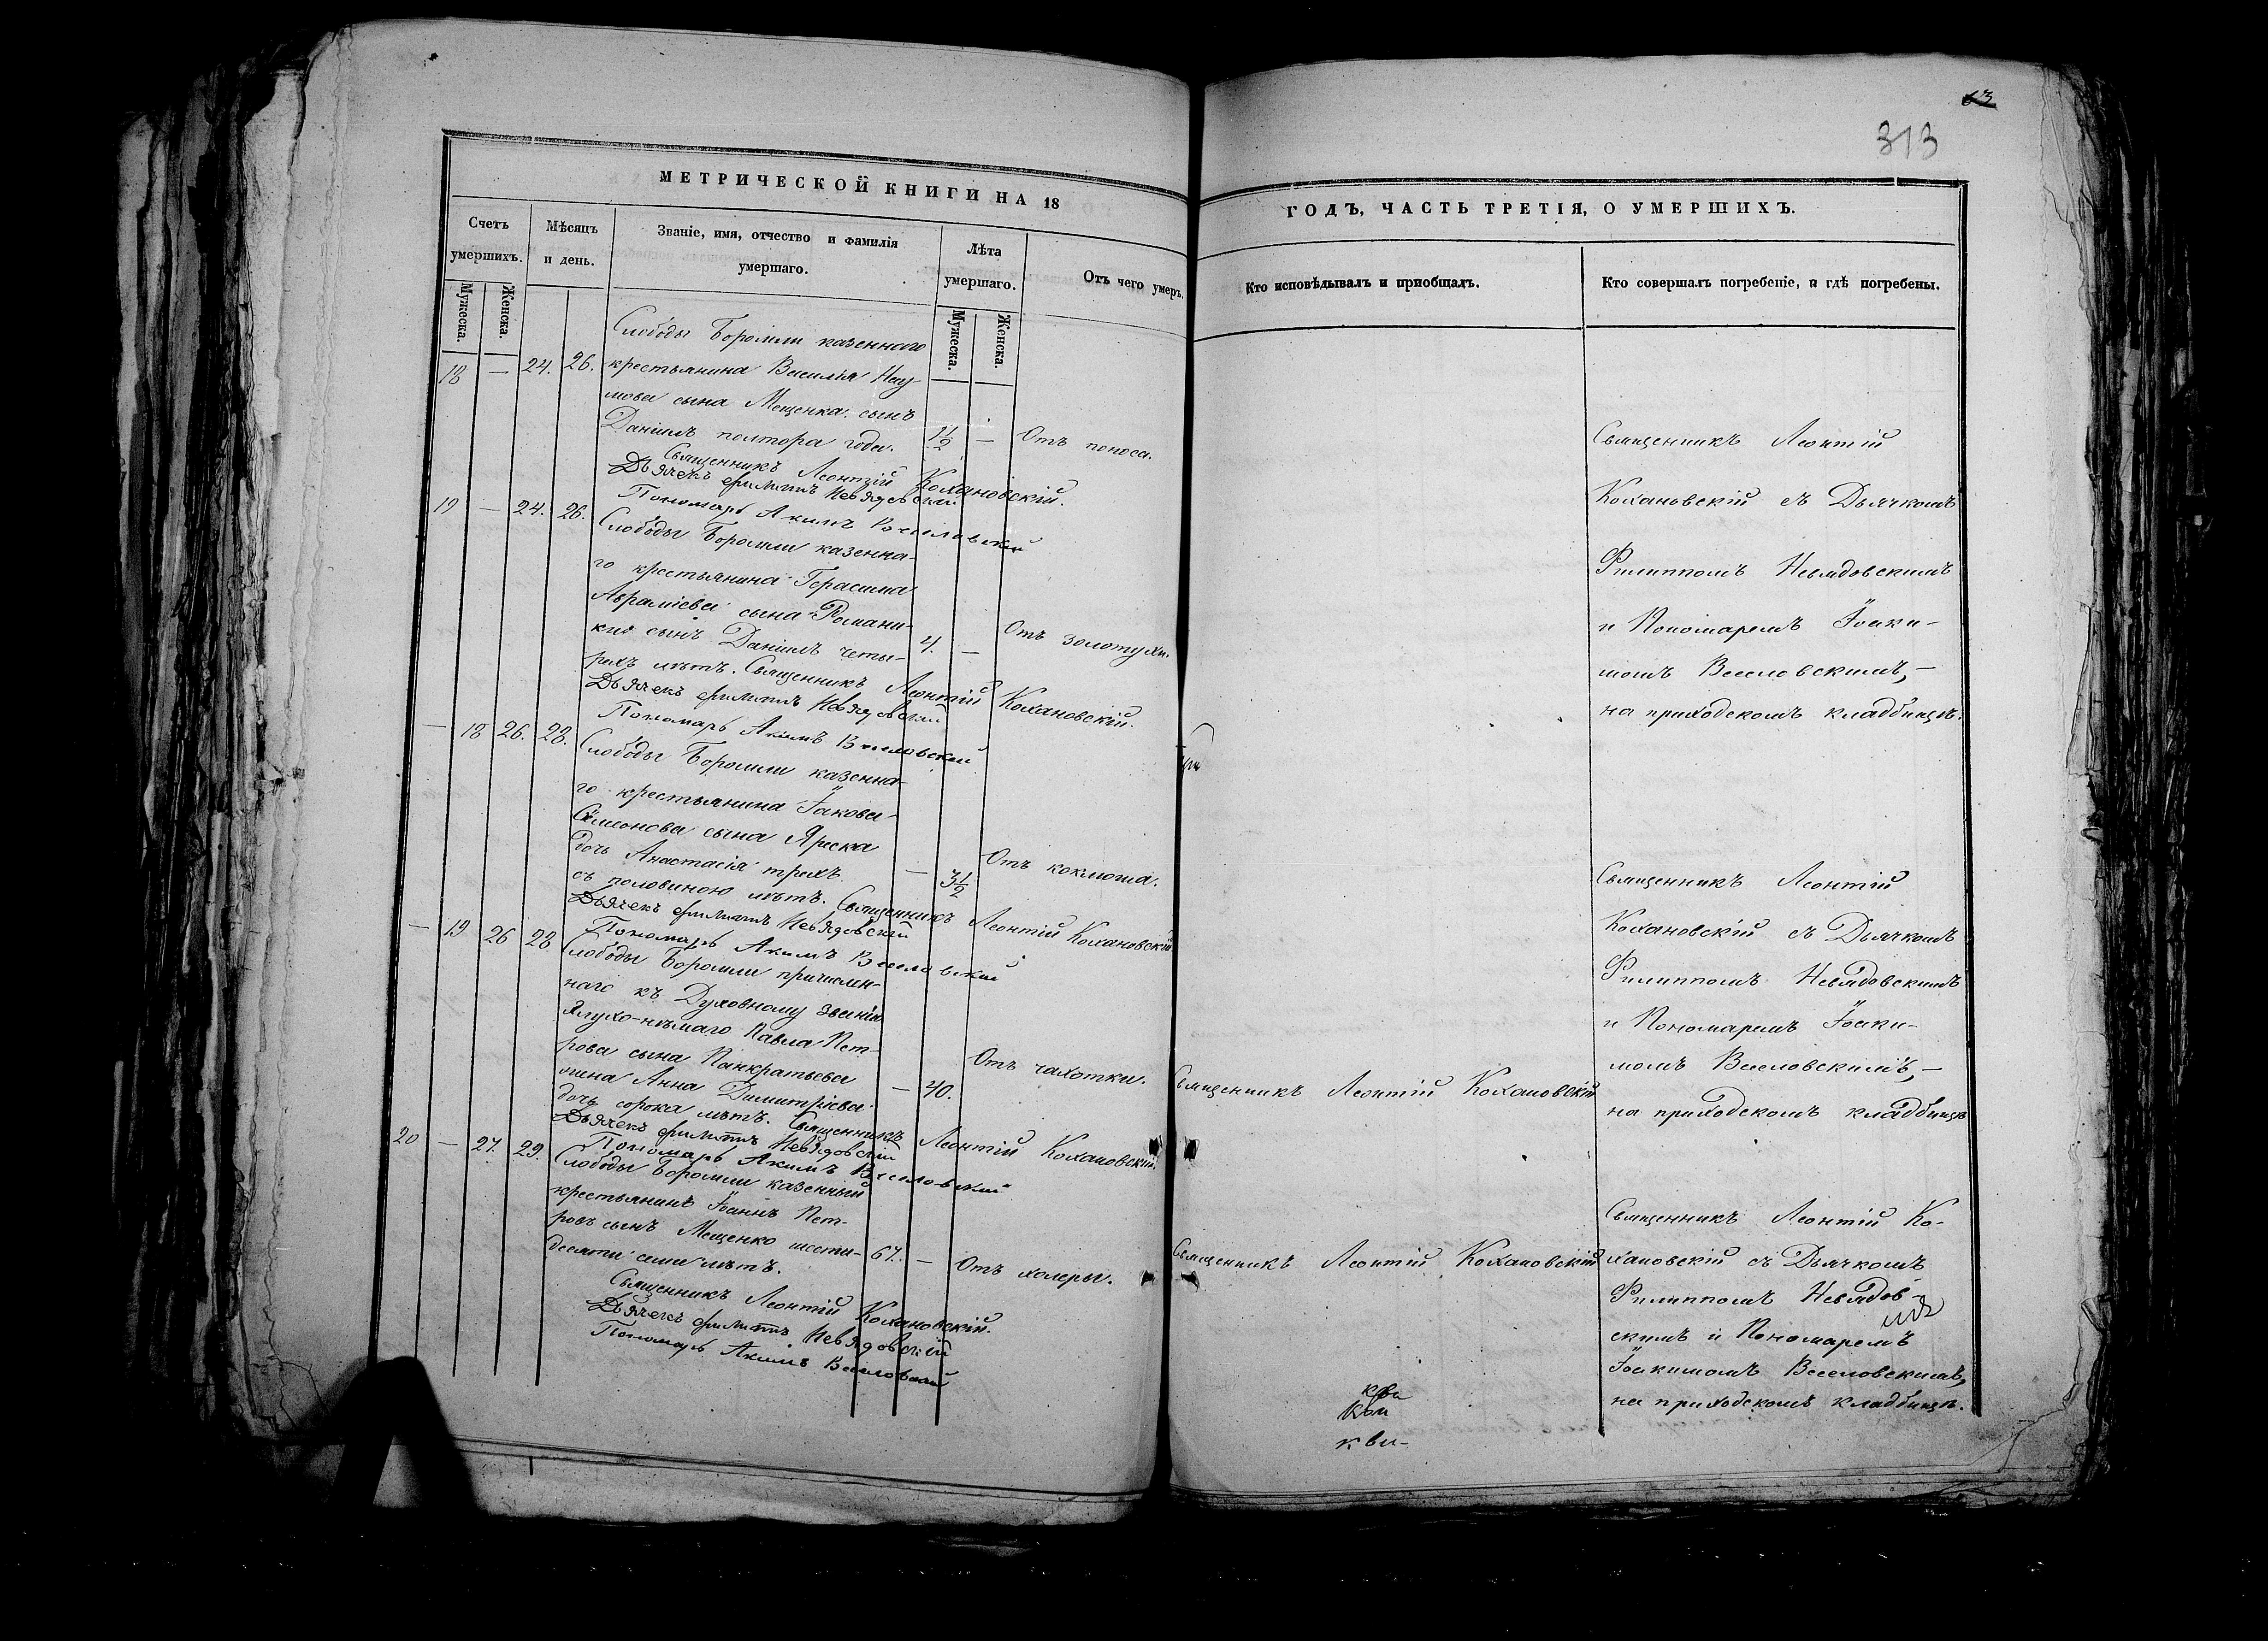 63
313
МЕТРИЧЕСКОЙ КНИГИ НА 18
ГОДЪ, ЧАСТЬ ТРЕТІЯ, О УМЕРШИХЪ.
Счетъ
умершихъ.
Мужеска.
Женска.
Мѣсяцъ
и день.
Званіе, имя, отчество и фамилія
умершаго.
Лѣта
умершаго.
Мужеска.
Женска.
Отъ чего умеръ.
Кто исповѣдывалъ и пріобщалъ.
Кто совершалъ погребеніе, и гдѣ погребены.
Слободы Боромли казеннаго
18 — 24. 26. крестьянина Василія Нау-
мова сына Мещенка сынъ
Даніилъ полтора года. 1 1/2 — Отъ поноса.
Священникъ Леонтій Кохановскій.
Дьячекъ Филиппъ Невядовскій
Пономарь Акимъ Веселовскій
19 — 24. 26. Слободы Боромли казенна-
го крестьянина Герасима
Авраміева сына Романи-
кия сынъ Даніилъ четы- 4. — Отъ золотухи.
рехъ лѣтъ. Священникъ Леонтій Кохановскій.
Дьячекъ Филиппъ Невядовскій
Пономарь Акимъ Веселовскій
— 18 26. 28. Слободы Боромли казенна-
го крестьянина Іакова
Симеонова сына Яреска
дочь Анастасія трехъ — 3 1/2 Отъ коклюша.
съ половиною лѣтъ. Священникъ Леонтій Кохановскій
Дьячекъ Филиппъ Невядовскій
Пономарь Акимъ Веселовскій
— 19 26 28 Слободы Боромли причислен-
наго къ Духовному званію
Глухо-нѣмаго Павла Пет-
рова сына Панкратьева
жена Анна Димитріева — 40. Отъ чахотки.
дочь сорока лѣтъ. Священникъ Леонтій Кохановскій.
Дьячекъ Филиппъ Невядовскій
Пономарь Акимъ Веселовскій
20 — 27. 29. Слободы Боромли казенный
крестьянинъ Іоаннъ Пет-
ровъ сынъ Мещенко шести- 67. — Отъ холеры.
десяти семи лѣтъ.
Священникъ Леонтій Кохановскій.
Дьячекъ Филиппъ Невядовскій
Пономарь Акимъ Веселовскій
Священникъ Леонтій Кохановскій
Священникъ Леонтій Кохановскій
Священникъ Леонтій
Кохановскій съ Дьячкомъ
Филиппомъ Невядовскимъ
и Пономаремъ Іоаки-
момъ Веселовскимъ, —
на приходскомъ кладбищѣ.
Священникъ Леонтій
Кохановскій съ Дьячкомъ
Филиппомъ Невядовскимъ
и Пономаремъ Іоаки-
момъ Веселовскимъ, —
на приходскомъ кладбищѣ
Священникъ Леонтій Ко-
хановскій съ Дьячкомъ
Филиппомъ Невядов-
скимъ и Пономаремъ
Іоакимомъ Веселовскимъ,
на приходскомъ кладбищѣ.